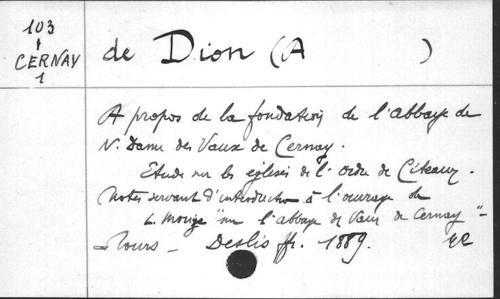 103
+
CERNAY
1
de Dion (A )
A propos de la fondation de l'abbaye de
N. Dame des Vaux de Cernay.
Etude sur les églises de l'ordre de Citeaux.
Notes servant d'introduction à l'ouvrage de
L. Morize "sur l'abbaye de Vaux de Cernay" -
Tours - Deslis fr. 1889.